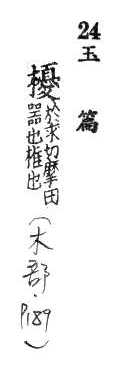 24 玉篇
櫌於求切摩田
器也椎也
(木部·P.189)